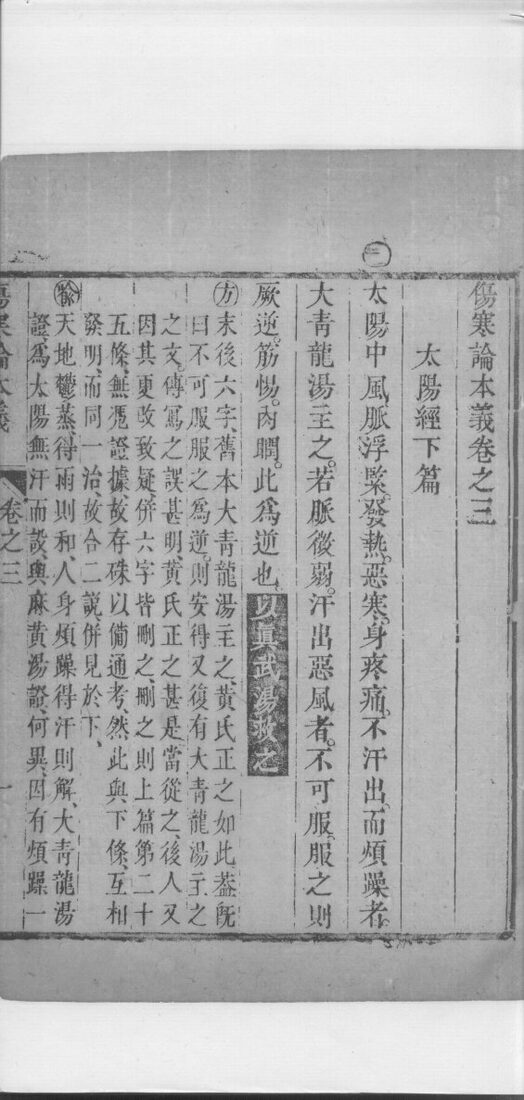 ㊁
傷寒論本義卷之三
太陽經下篇
太陽中風脈浮緊。發熱。惡寒。身疼痛。不汗出。而煩躁者。
大青龍湯主之。若脈微弱。汗出惡風者。不可服。服之則
厥逆。筋惕。肉瞤。此爲逆也、以眞武湯救之
方末後六字、舊本大青龍湯主之、黃氏正之如此、蓋既
曰不可服、服之爲逆、則安得又復有大青龍湯主之
之文。傳寫之誤甚明、黃氏正之甚是、當從之、後人又
因其更改致疑、併六字皆刪之、刪之則上篇第二十
五條、無憑證據、故存硃以備通考、然此與下條互相
發明、而同一治、故合二說併見於下、
喻天地鬱蒸、得雨則和、人身煩躁得汗則解、大青龍湯
證、爲太陽無汗而設、與麻黃湯證、何異、因有煩躁一
傷寒論本義
卷之三
一